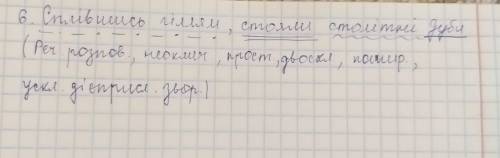 6. Сплівшись гіллям, стояли столітні дуби
(Реч розпов., неоклич, прост, двоскл, пошир.,
ускл. дієприсл. звор.)